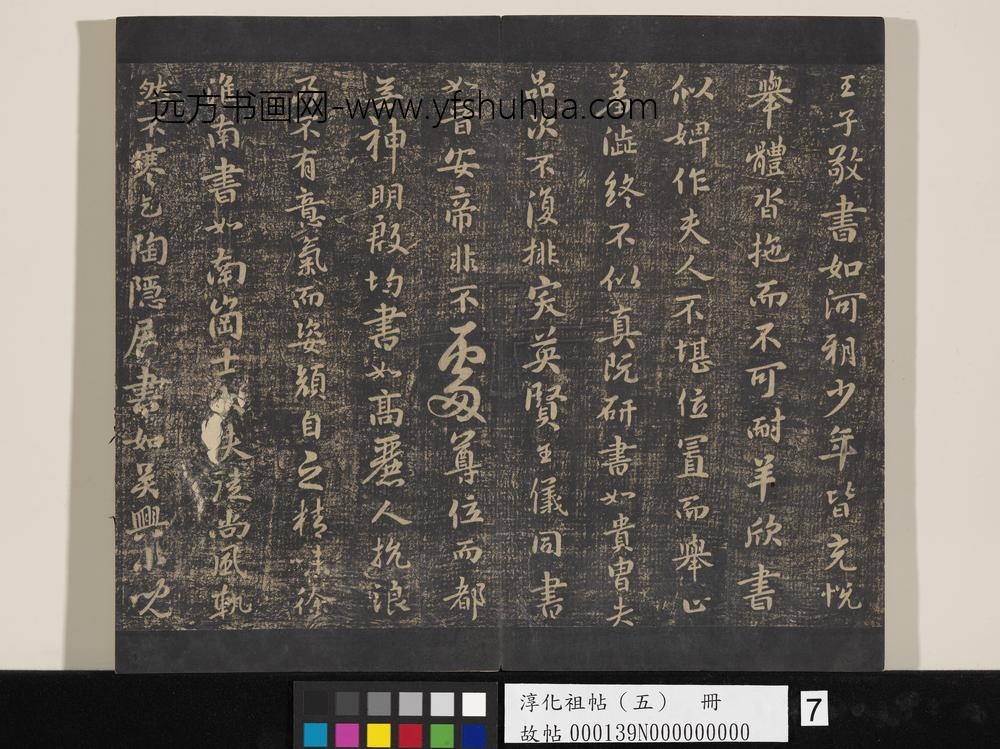 王子敬書如河朔少年皆充悅
舉體沓拖而不可耐羊欣書
似婢作夫人不堪位置而舉止
羞澁終不似真阮研書如貴胄失
品次不復排突英賢王儀同書
如晉安帝非不處尊位而都
無神明殷均書如高麗人抗浪
不有意氣而姿顏自乏精味徐
淮南書如南崗士夫徒尚風軌
然不寒乞陶隱居書如吳興小兒
远方书画网-www.yfshuhua.com
淳化祖帖（五） 冊
故帖 000139N000000000
7